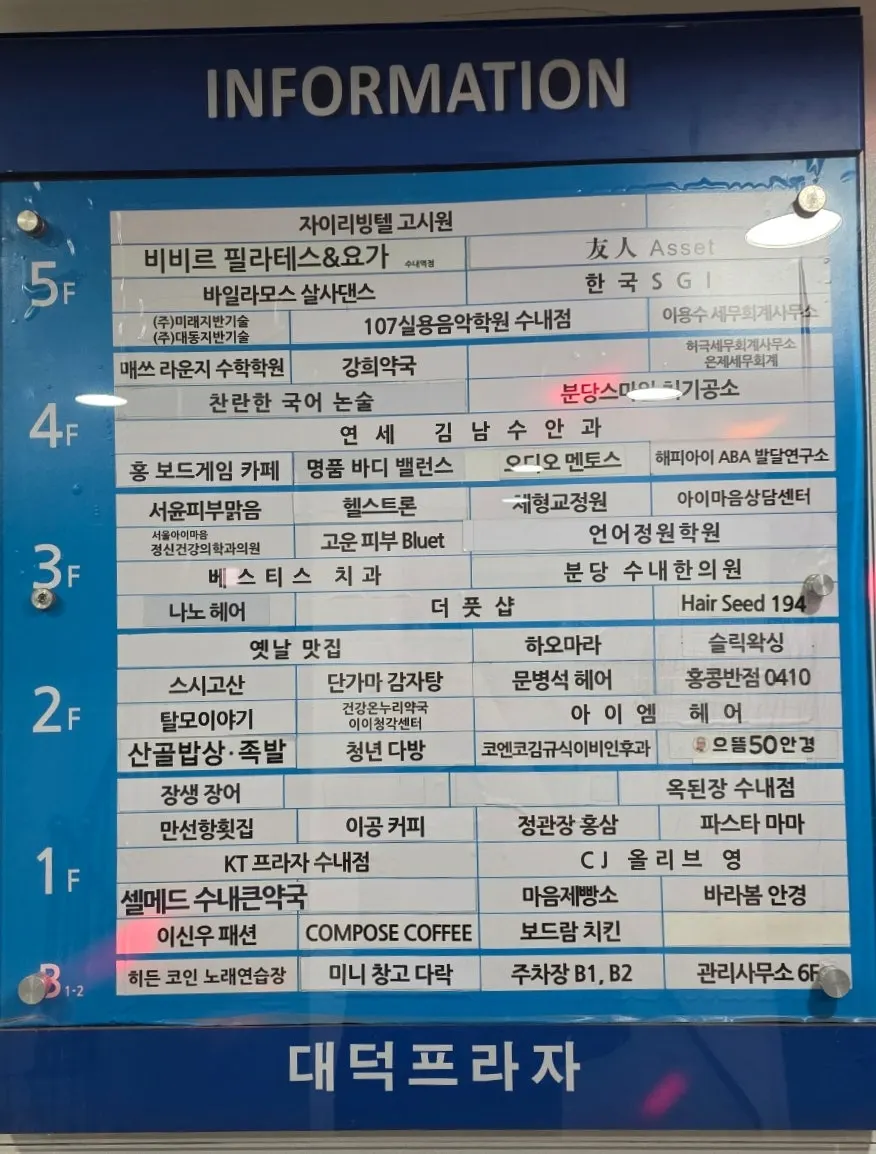 INFORMATION
자이리빙텔 고시원
5F
비비르 필라테스&요가 수내역점
友人 Asset
바일라모스 살사댄스
한국SGI
(주)미래지반기술
(주)대동지반기술
107실용음악학원 수내점
이용수 세무회계사무소
4F
매쓰 라운지 수학학원
강희약국
허극세무회계사무소
은제세무회계
찬란한 국어 논술
분당스마일 치기공소
연세 김남수 안과
홍 보드게임 카페
명품 바디 밸런스
오디오 멘토스
해피아이 ABA 발달연구소
3F
서윤피부맑음
헬스트론
체형교정원
아이마음상담센터
서울아이마음
정신건강의학과의원
고운 피부 Bluet
언어정원학원
베스티스 치과
분당 수내한의원
나노 헤어
더 풋 샵
Hair Seed 194
2F
옛날 맛집
하오마라
슬릭왁싱
스시고산
단가마 감자탕
문병석 헤어
홍콩반점 0410
탈모이야기
건강온누리약국
이이청각센터
아이엠 헤어
산골밥상·족발
청년 다방
코엔코김규식이비인후과
으뜸50안경
1F
장생 장어
옥된장 수내점
만선항횟집
이공 커피
정관장 홍삼
파스타 마마
KT 프라자 수내점
CJ 올리브 영
셀메드 수내큰약국
마음제빵소
바라봄 안경
이신우 패션
COMPOSE COFFEE
보드람 치킨
B1-2
히든 코인 노래연습장
미니 창고 다락
주차장 B1, B2
관리사무소 6F
대덕프라자